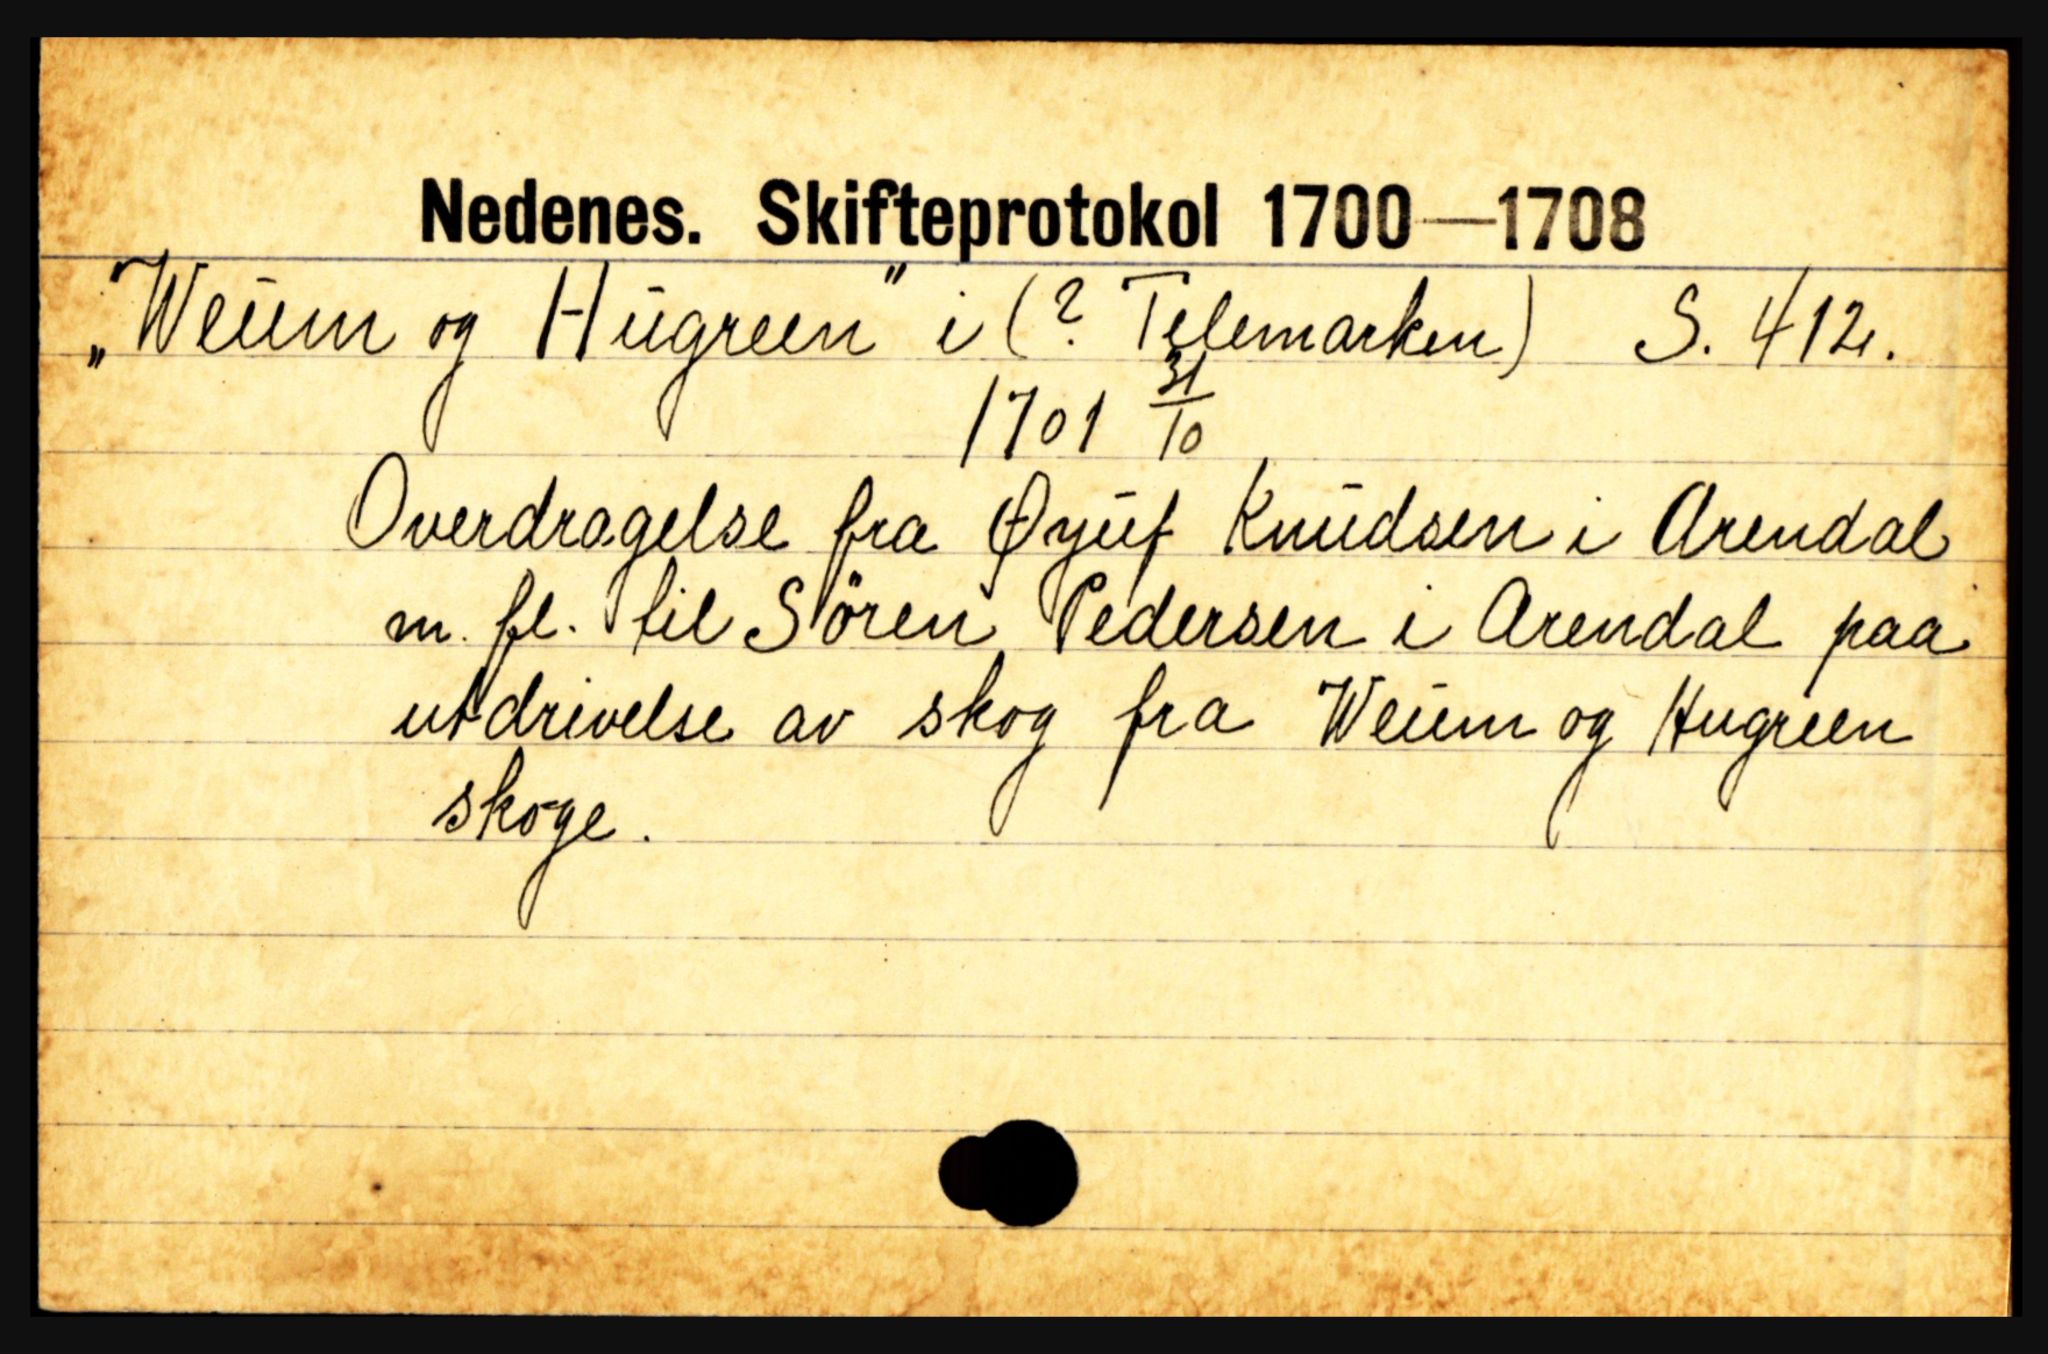 Nedenes. Skifteprotokol 1700—1708
„Weum og Hugreen" i (? Telemarken) S. 412.
1701 31/10
Overdragelse fra Øyuf Knudsen i Arendal
m. fl. til Sören Pedersen i Arendal paa
utdrivelse av skog fra Weum og Hugreen
skoge.